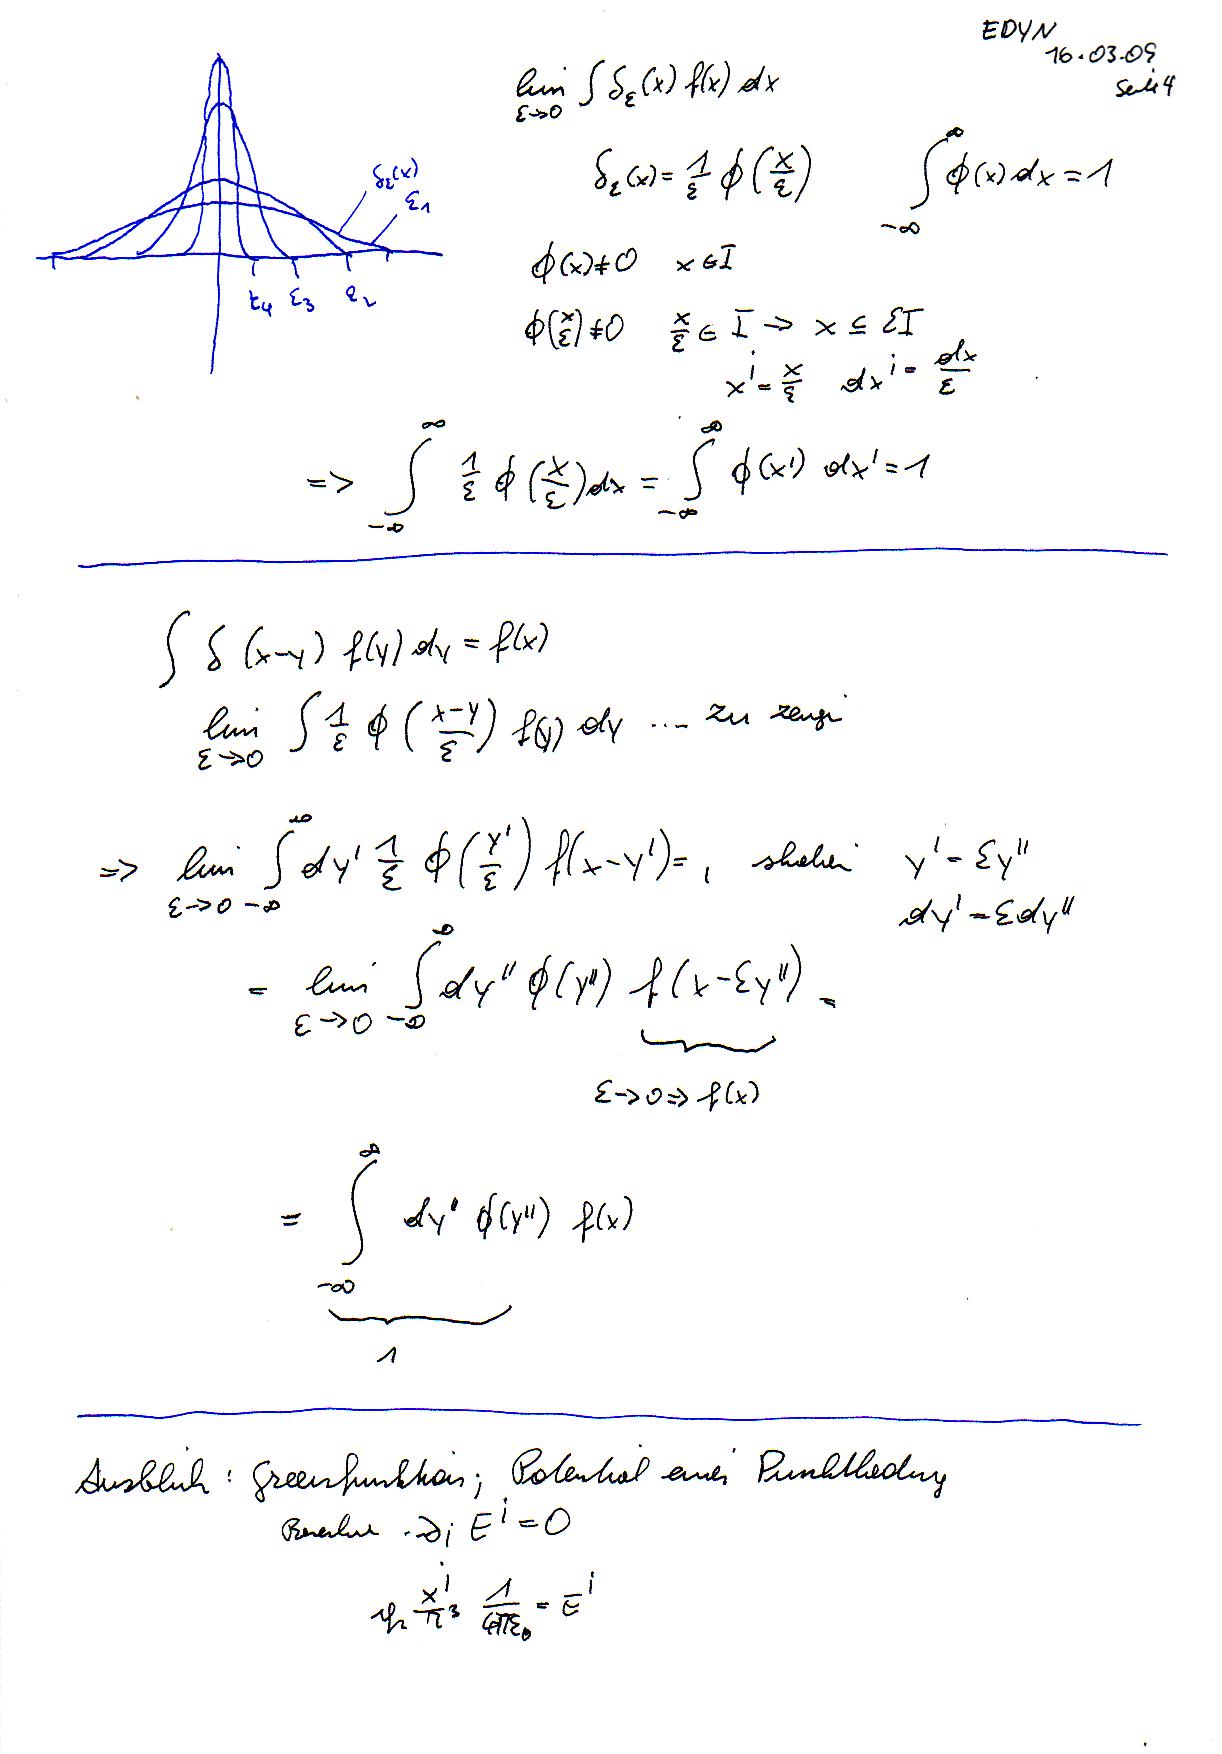 EDYN
16.03.09
Seite 4
lim ε→0 ∫ δ_ε(x) f(x) dx
δ_ε(x) = 1/ε ϕ(x/ε)   ∫_{-∞}^{∞} ϕ(x) dx = 1
δ_ε(x)
ε1
ε4 ε3 ε2
ϕ(x) ≠ 0   x ∈ I
ϕ(x/ε) ≠ 0   x/ε ∈ I → x ⊆ εI
x' = x/ε   dx' = dx/ε
=> ∫_{-∞}^{∞} 1/ε ϕ(x/ε) dx = ∫_{-∞}^{∞} ϕ(x') dx' = 1
∫ δ(x-y) f(y) dy = f(x)
lim ε→0 ∫ 1/ε ϕ((x-y)/ε) f(y) dy .... zu zeigen
=> lim ε→0 ∫_{-∞}^{∞} dy' 1/ε ϕ(y'/ε) f(x-y') = , y' = εy''
dy' = εdy''
= lim ε→0 ∫_{-∞}^{∞} dy'' ϕ(y'') f(x-εy'') =
ε→0 => f(x)
= ∫_{-∞}^{∞} dy'' ϕ(y'') f(x)
1
Ausblick: Greensfunktion; Potential einer Punktladung
∂i E^i = 0
x^i/r³ 1/(4πε₀) = E^i